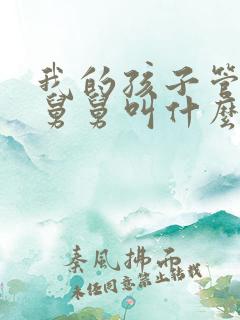 我的孩子管
舅舅叫什麼
秦風拂面
未经同意禁止转载